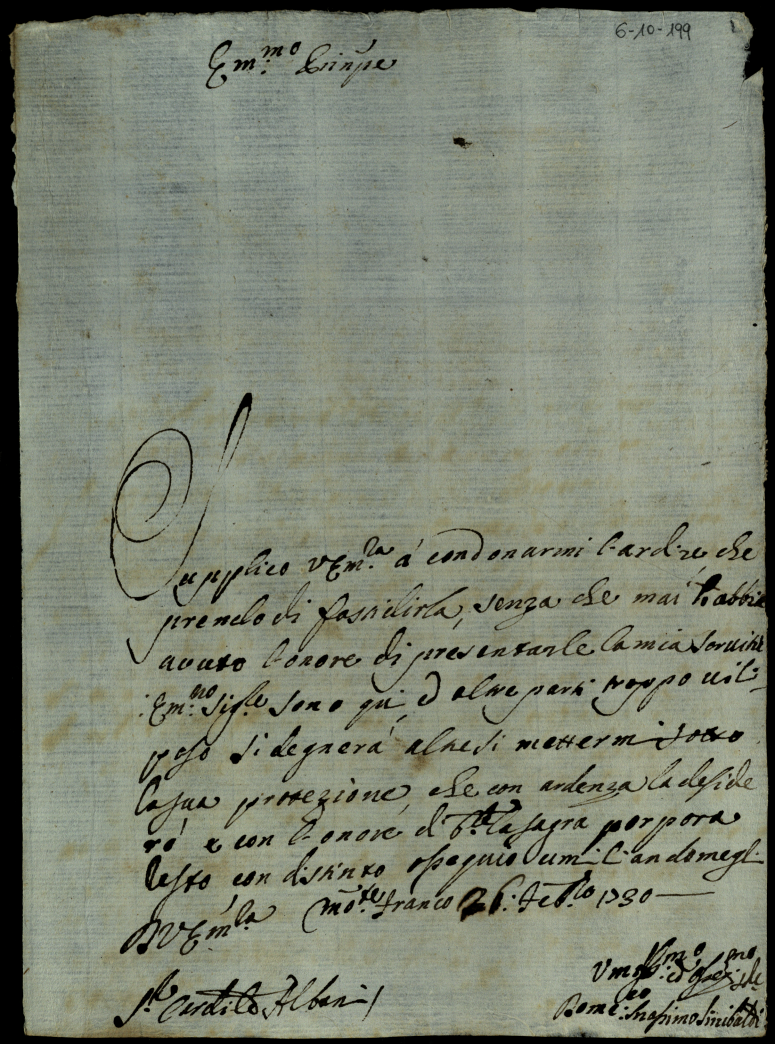 6-10-199
Em.mo Prinpe
Supplico VEm.za á condonarmi l'ardire che
prendo di fastidirla, senza che mai habbia
avuto l'onore di presentarle la mia servitù
Em.mo Sig.re sono qui, é altre parti troppo vili-
peso si degnerà altresi mettermi sotto
la sua protezione, che con ardenza la deside
ró e con l'onore di la sagra porpora
resto con distinto ossequio umiliandomegli
DVEm.za Mõte franco 26: Feb.ro 1730
S.r Cardile Albani
Vm.o ed
Romo: Massimo Sinibaldi